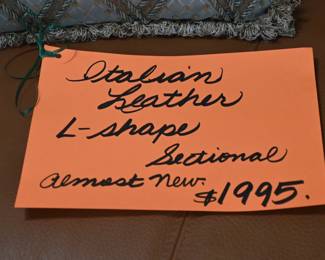 Italian
Leather
L-shape
Sectional
almost new.
$1995.